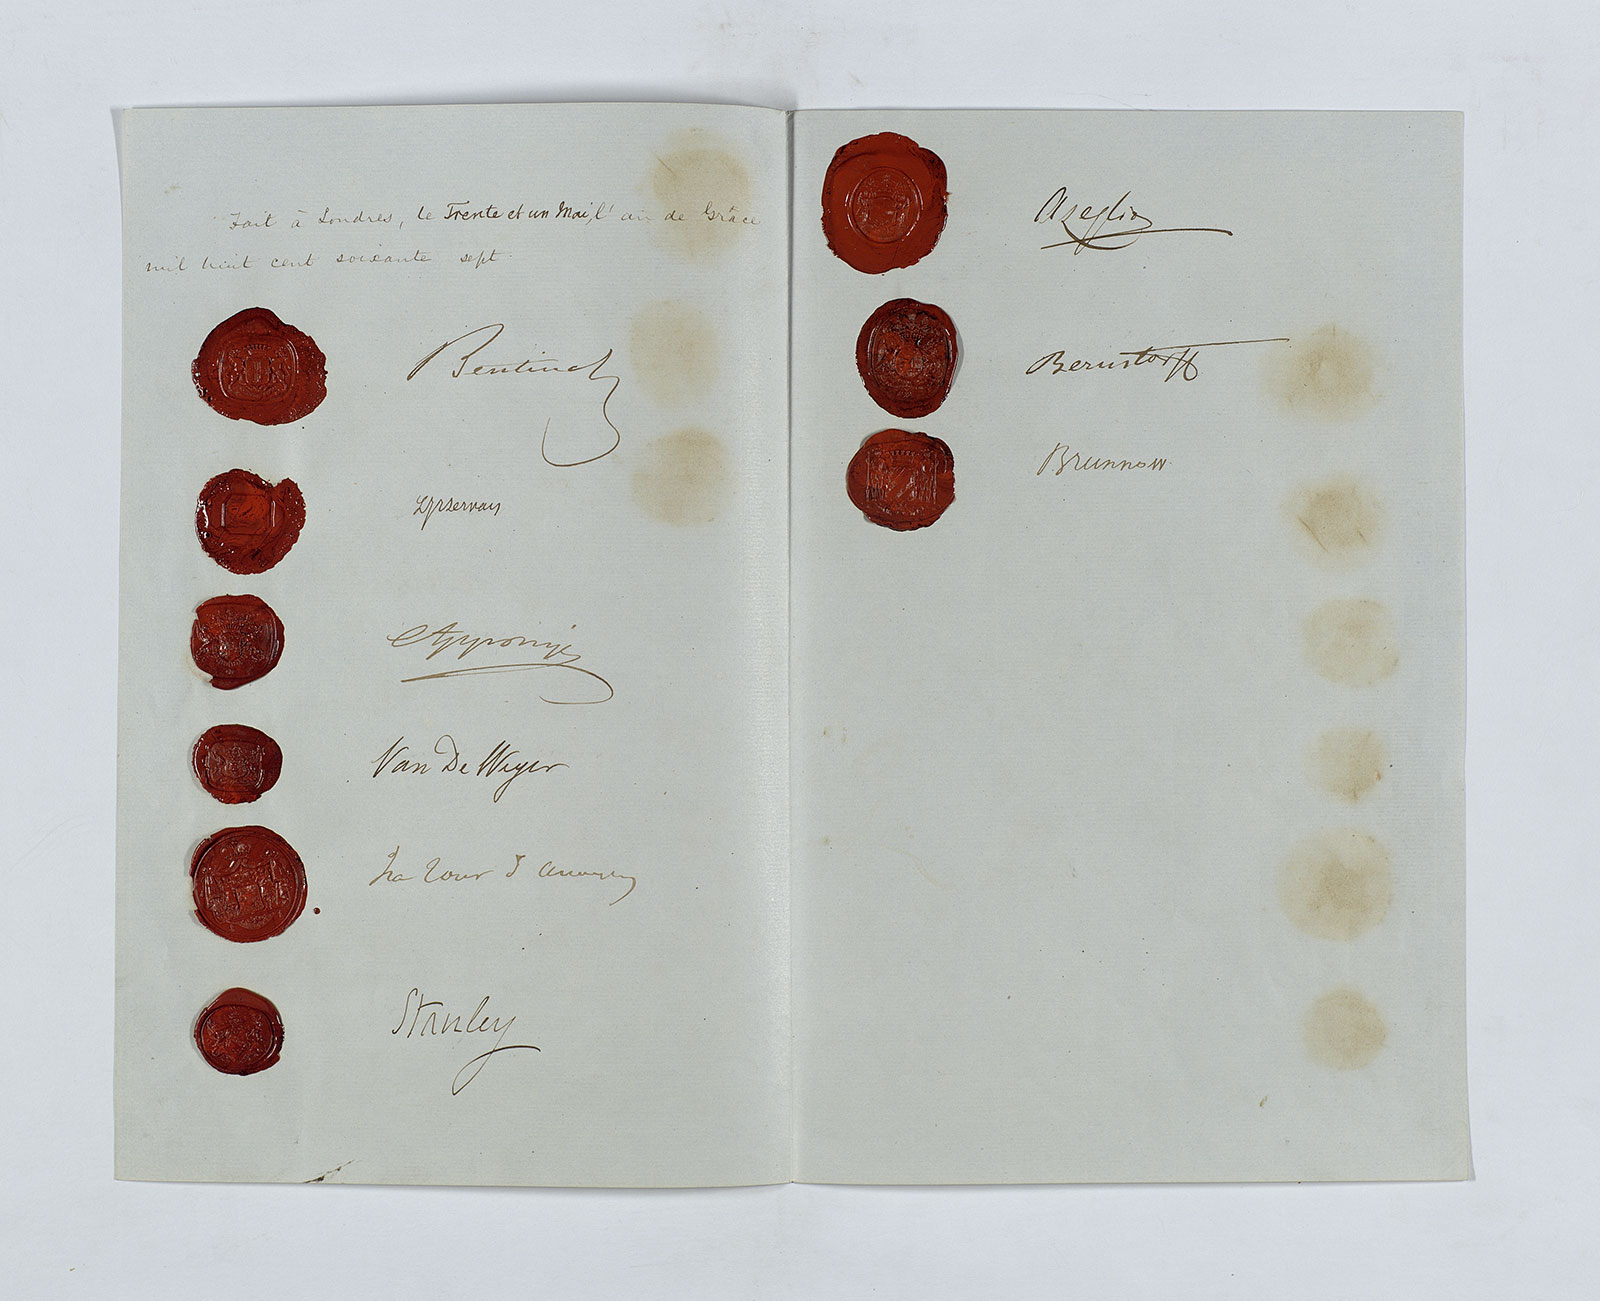 Fait à Londres, le Trente et un Mai, l'an de Grâce
mil huit cent soixante sept.
Bentinck
Apponyi
Van De Weyer
La Tour d'Auvergne
Stanley
Azeglio
Bernstorff
Brunnow